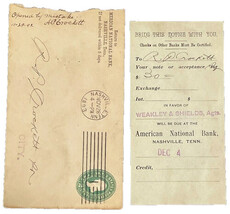 Opened by mistake
R. D. Crockett
AMERICAN NATIONAL BANK,
NASHVILLE,
R D Crockett
City.
NASHVILLE
TENN.
BRING THIS NOTICE WITH YOU.
Checks on Other Banks Must Be Certified.
To R. D. Crockett
Your note or acceptance
$ 30.00
Exchange,
Int.
IN FAVOR OF
WEAKLEY & SHIELDS, Agts
WILL BE DUE AT THE
American National Bank,
NASHVILLE, TENN.
DEC 4
Credit,